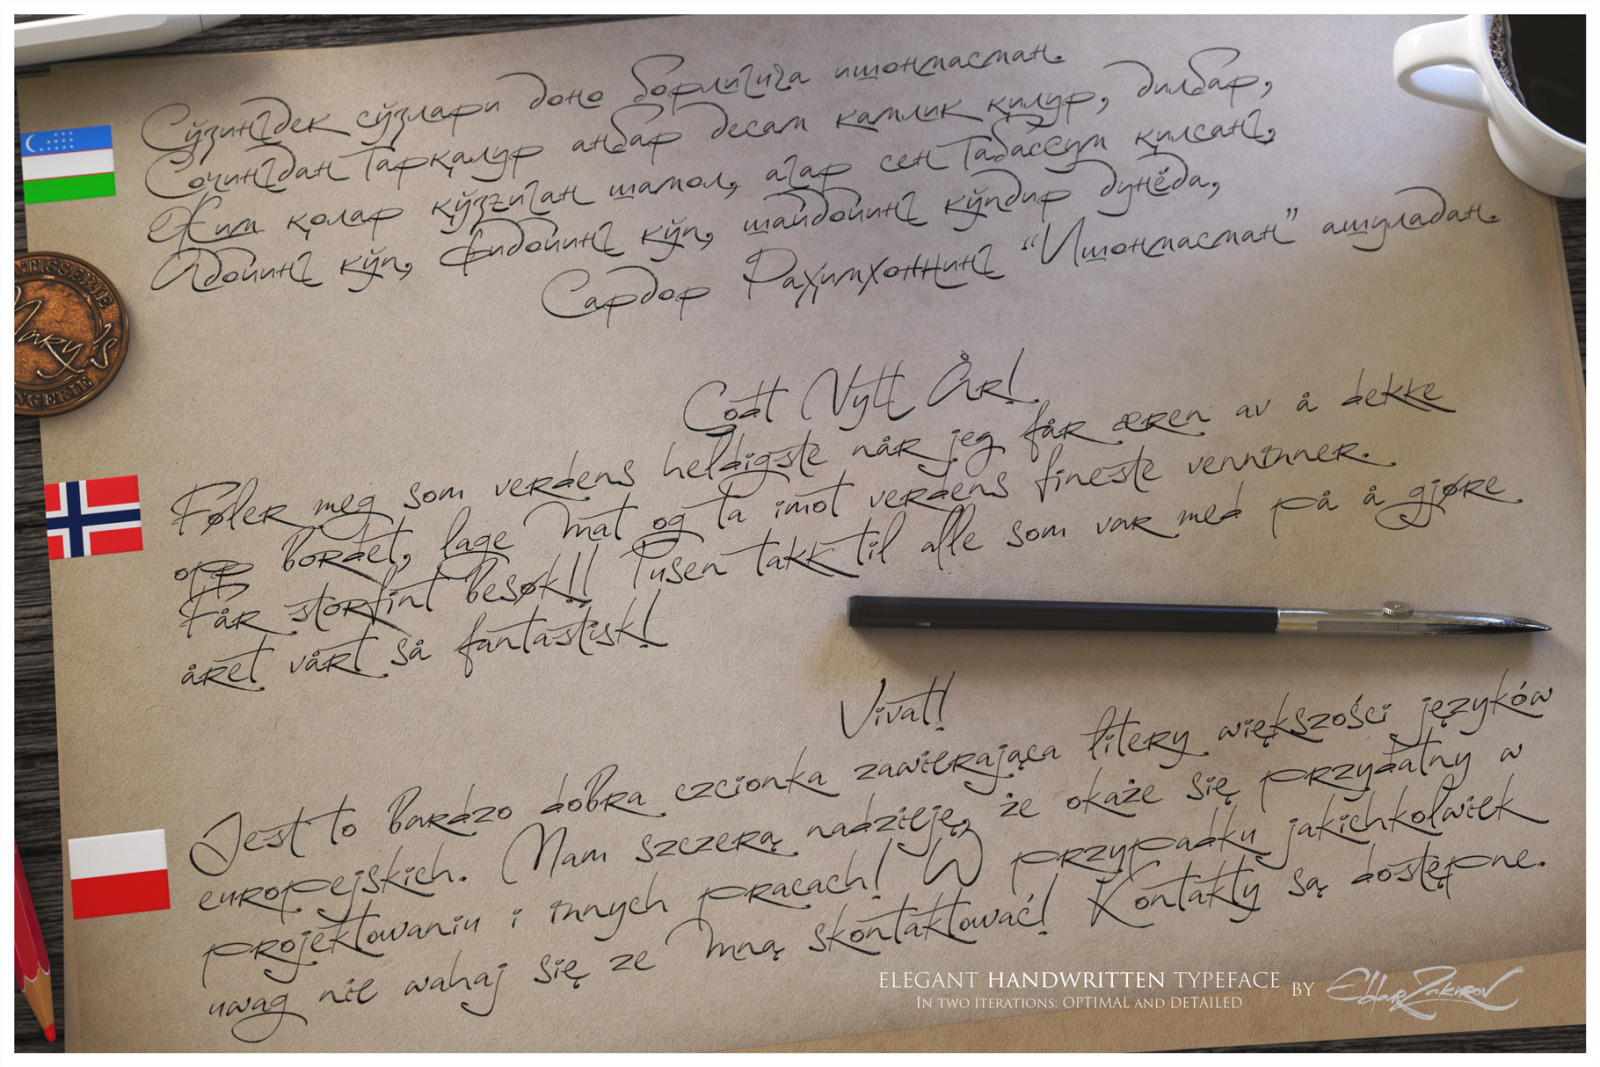 Сўзингдек сўзлари доно борлигига ишонмасман.
Сочингдан тарқалур анбар десам камлик қилур, дилбар,
Жим қолар қўзғиган шамол, агар сен табассум қилсанг,
Адойинг кўп, фидойинг кўп, шайдойинг кўпдир дунёда,
Сардор Раҳимхоннинг “Ишонмасман” ашуладан.
Godt Nytt År!
Føler meg som verdens heldigste når jeg får æren av å dekke
opp bordet, lage mat og ta imot verdens fineste venninner.
Får storfint besøk!! Tusen takk til alle som var med på å gjøre
året vårt så fantastisk!
Vivat!
Jest to bardzo dobra czcionka zawierająca litery większości języków
europejskich. Mam szczerą nadzieję, że okaże się przydatny w
projektowaniu i innych pracach! W przypadku jakichkolwiek
uwag nie wahaj się ze mną skontaktować! Kontakty są dostępne.
Mary's
ELEGANT HANDWRITTEN TYPEFACE BY Eldar Zakirov
IN TWO ITERATIONS: OPTIMAL AND DETAILED